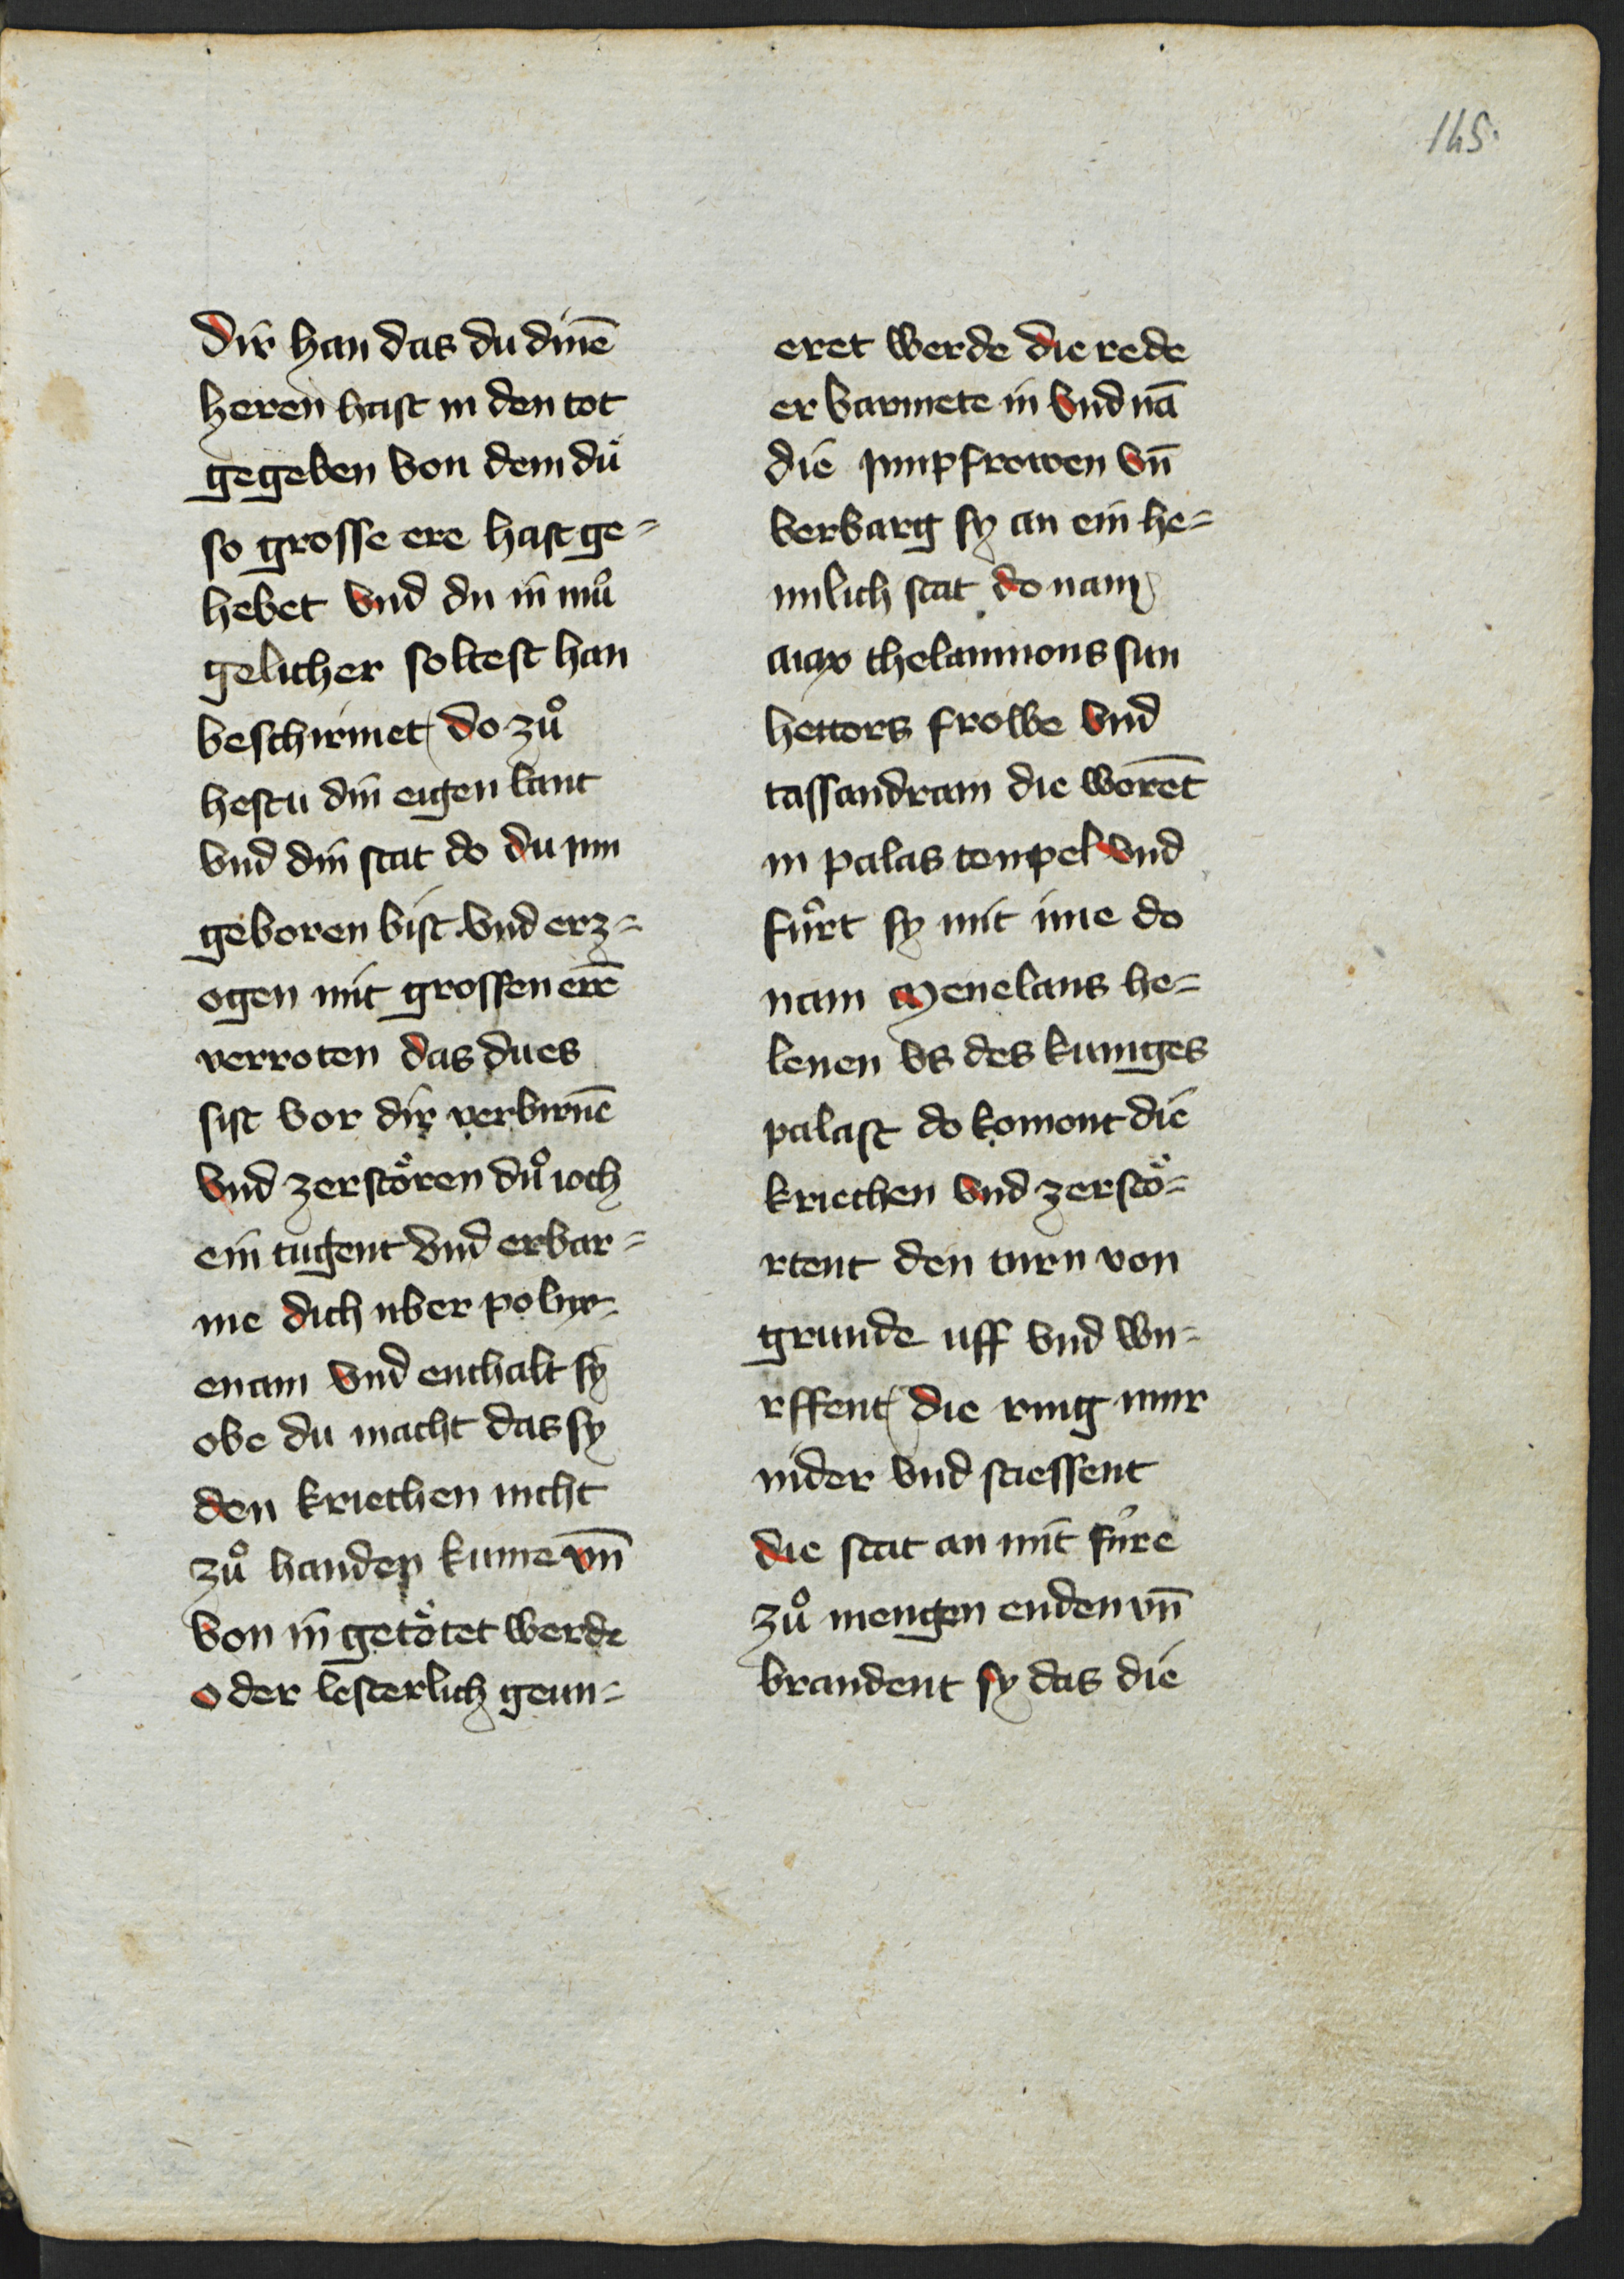 145.
Dir han das du dinē
heren hast in den tot
gegeben von dem du
so grosse ere hast ge=
hebet vnd du in mů
gelicher soltest han
beschirmet do zů
hestu din eigen lant
vnd din stat do du inn
geboren bist vnd erz=
ogen mit grossen erē
verroten das du es
sist vor dir verbrinē
vnd zerstören dů ioch
ein tugent vnd erbar=
me dich uber polix-
enam vnd enthalt sy
obe du macht das sy
den kriechen nicht
zů handen kume vn̄
von in getötet werde
oder lesterlich geun=
eret werde die rede
erbarmete in vnd nā
die jungfrowen vn̄
verbarg sy an ein he=
imlich stat do nam
aiax thelammons sun
hectors frowe vnd
cassandram die worēt
in palas tempel vnd
fůrt sy mit ime do
nam Menelaus he=
lenen vs des kuniges
palast do koment die
kriechen vnd zerstö=
rtent den turn von
grunde uff vnd wu=
rffent die ring mur
nider vnd stiessent
die stat an mit füre
zů mengen enden vn̄
brandent sy das die